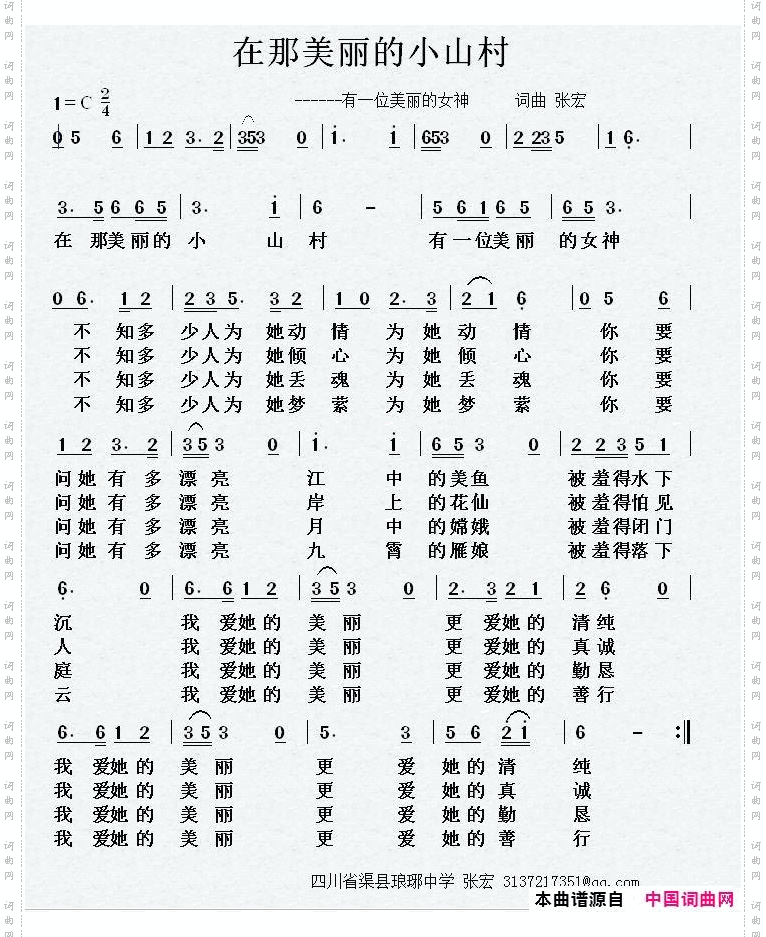 在那美丽的小山村
1=C 2/4 ------有一位美丽的女神 词曲 张宏
0 5 6 | 1 2 3. 2 | 353 0 | i. i | 653 0 | 2 235 | 1 6. |
3. 5 6 6 5 | 3. i | 6 - | 5 6 1 6 5 | 6 5 3. |
在 那美丽的 小 山 村 有一位美丽 的女神
0 6. 1 2 | 2 3 5. 3 2 | 1 0 2. 3 | 2 1 6 | 0 5 6
不 知多 少人为 她动 情 为她 动 情 你 要
不 知多 少人为 她倾 心 为她 倾 心 你 要
不 知多 少人为 她丢 魂 为她 丢 魂 你 要
不 知多 少人为 她梦 萦 为她 梦 萦 你 要
1 2 3. 2 | 3 5 3 0 | i. i | 6 5 3 0 | 2 2 3 5 1
问她 有 多 漂 亮 江 中 的美鱼 被羞得水下
问她 有 多 漂 亮 岸 上 的花仙 被羞得怕见
问她 有 多 漂 亮 月 中 的嫦娥 被羞得闭门
问她 有 多 漂 亮 九 霄 的雁娘 被羞得落下
6. 0 | 6. 6 1 2 | 3 5 3 0 | 2. 3 2 1 | 2 6 0
沉 我 爱她的 美 丽 更 爱她的 清纯
人 我 爱她的 美 丽 更 爱她的 真诚
庭 我 爱她的 美 丽 更 爱她的 勤恳
云 我 爱她的 美 丽 更 爱她的 善行
6. 6 1 2 | 3 5 3 0 | 5. 3 | 5 6 2 i | 6 - :||
我 爱她的 美 丽 更 爱 她的 清 纯
我 爱她的 美 丽 更 爱 她的 真 诚
我 爱她的 美 丽 更 爱 她的 勤 恳
我 爱她的 美 丽 更 爱 她的 善 行
四川省渠县琅琊中学 张宏 3137217351@qq.com
本曲谱源自 中国词曲网